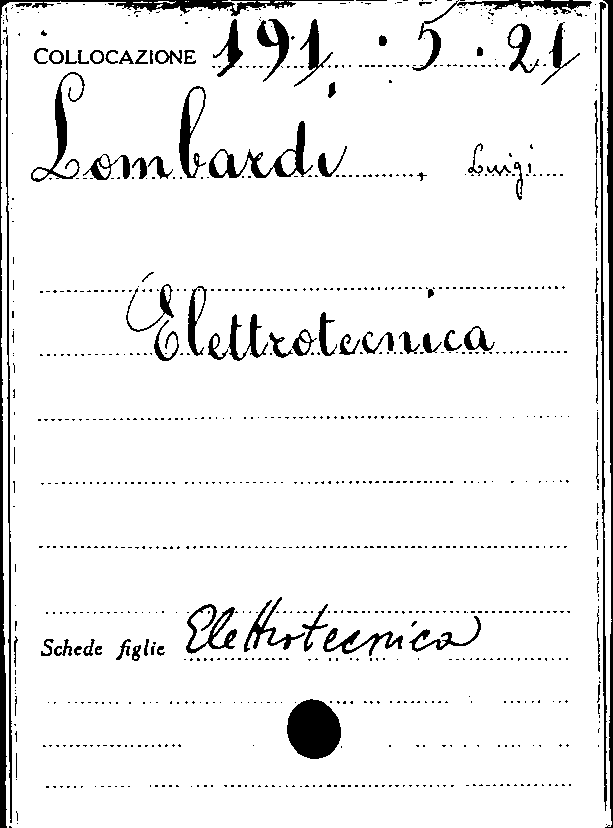 COLLOCAZIONE 191 . 5 . 21
Lombardi , Luigi
Elettrotecnica
Schede figlie Elettrotecnica